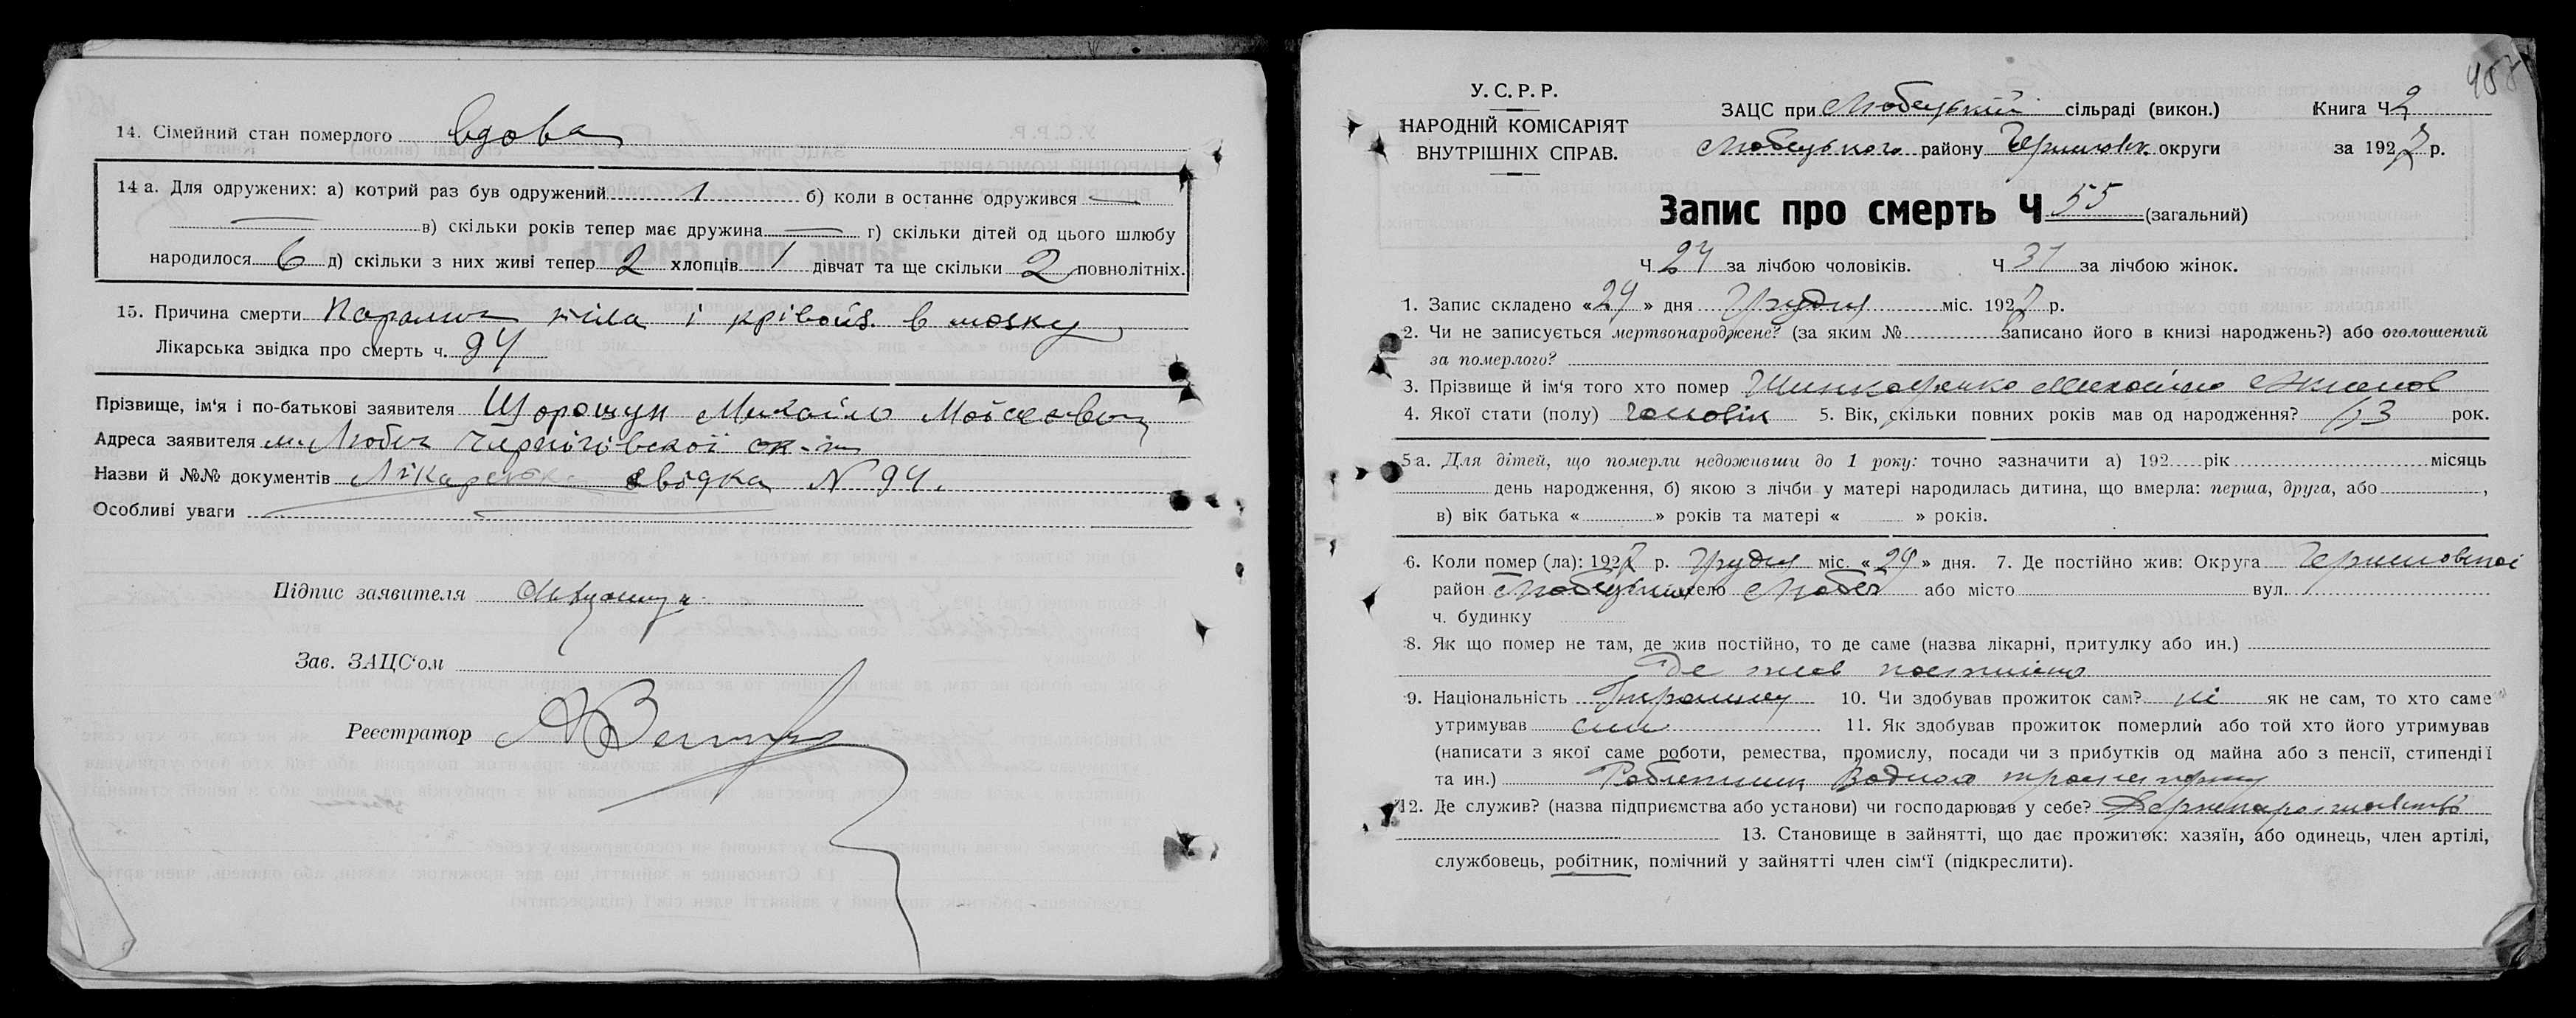 14. Сімейний стан померлого вдова
14 а. Для одружених: а) котрий раз був одружений 1 б) коли в останнє одружився —
— в) скільки років тепер має дружина — г) скільки дітей од цього шлюбу
народилося 6 д) скільки з них живі тепер 2 хлопців 1 дівчат та ще скільки 2 повнолітніх.
15. Причина смерти Параліч тіла і крівоиз. в мозку
Лікарська звідка про смерть ч. 94
Прізвище, ім'я і по-батькові заявителя Михайло
Адреса заявителя м. Любеч Чернігівської ок-ги
Назви й №№ документів Лікарська звідка N 94.
Особливі уваги
Підпис заявителя
Зав. ЗАЦС'ом
Реєстратор
У. С. Р. Р.
НАРОДНІЙ КОМІСАРІЯТ
ВНУТРІШНІХ СПРАВ.
ЗАЦС при Любецький сільраді (викон.)
Любецького району округи
Книга Ч 2
за 1927 р.
Запис про смерть Ч 55 (загальний)
Ч 24 за лічбою чоловіків. Ч 31 за лічбою жінок.
1. Запис складено «29» дня Грудня міс. 1927 р.
2. Чи не записується мертвонароджене? (за яким № записано його в книзі народжень?) або оголошений
за померлого?
3. Прізвище й ім'я того хто помер
4. Якої стати (полу) Чоловік 5. Вік, скільки повних років мав од народження? 63 рок.
5 а. Для дітей, що померли недоживши до 1 року: точно зазначити а) 192 рік місяць
день народження, б) якою з лічби у матері народилась дитина, що вмерла: перша, друга, або ,
в) вік батька « » років та матері « » років.
6. Коли помер (ла): 1927 р. Грудня міс. «29» дня. 7. Де постійно жив: Округа
район Любецький село Любеч або місто вул.
ч. будинку
8. Як що помер не там, де жив постійно, то де саме (назва лікарні, притулку або ин.)
Де жив постійно
9. Національність Українец 10. Чи здобував прожиток сам? ні як не сам, то хто саме
утримував син 11. Як здобував прожиток померлий або той хто його утримував
(написати з якої саме роботи, ремества, промислу, посади чи з прибутків од майна або з пенсії, стипендії
та ин.) Водного транспорту
12. Де служив? (назва підприємства або установи) чи господарював у себе?
13. Становище в зайнятті, що дає прожиток: хазяїн, або одинець, член артілі,
службовець, робітник, помічний у зайнятті член сім'ї (підкреслити).